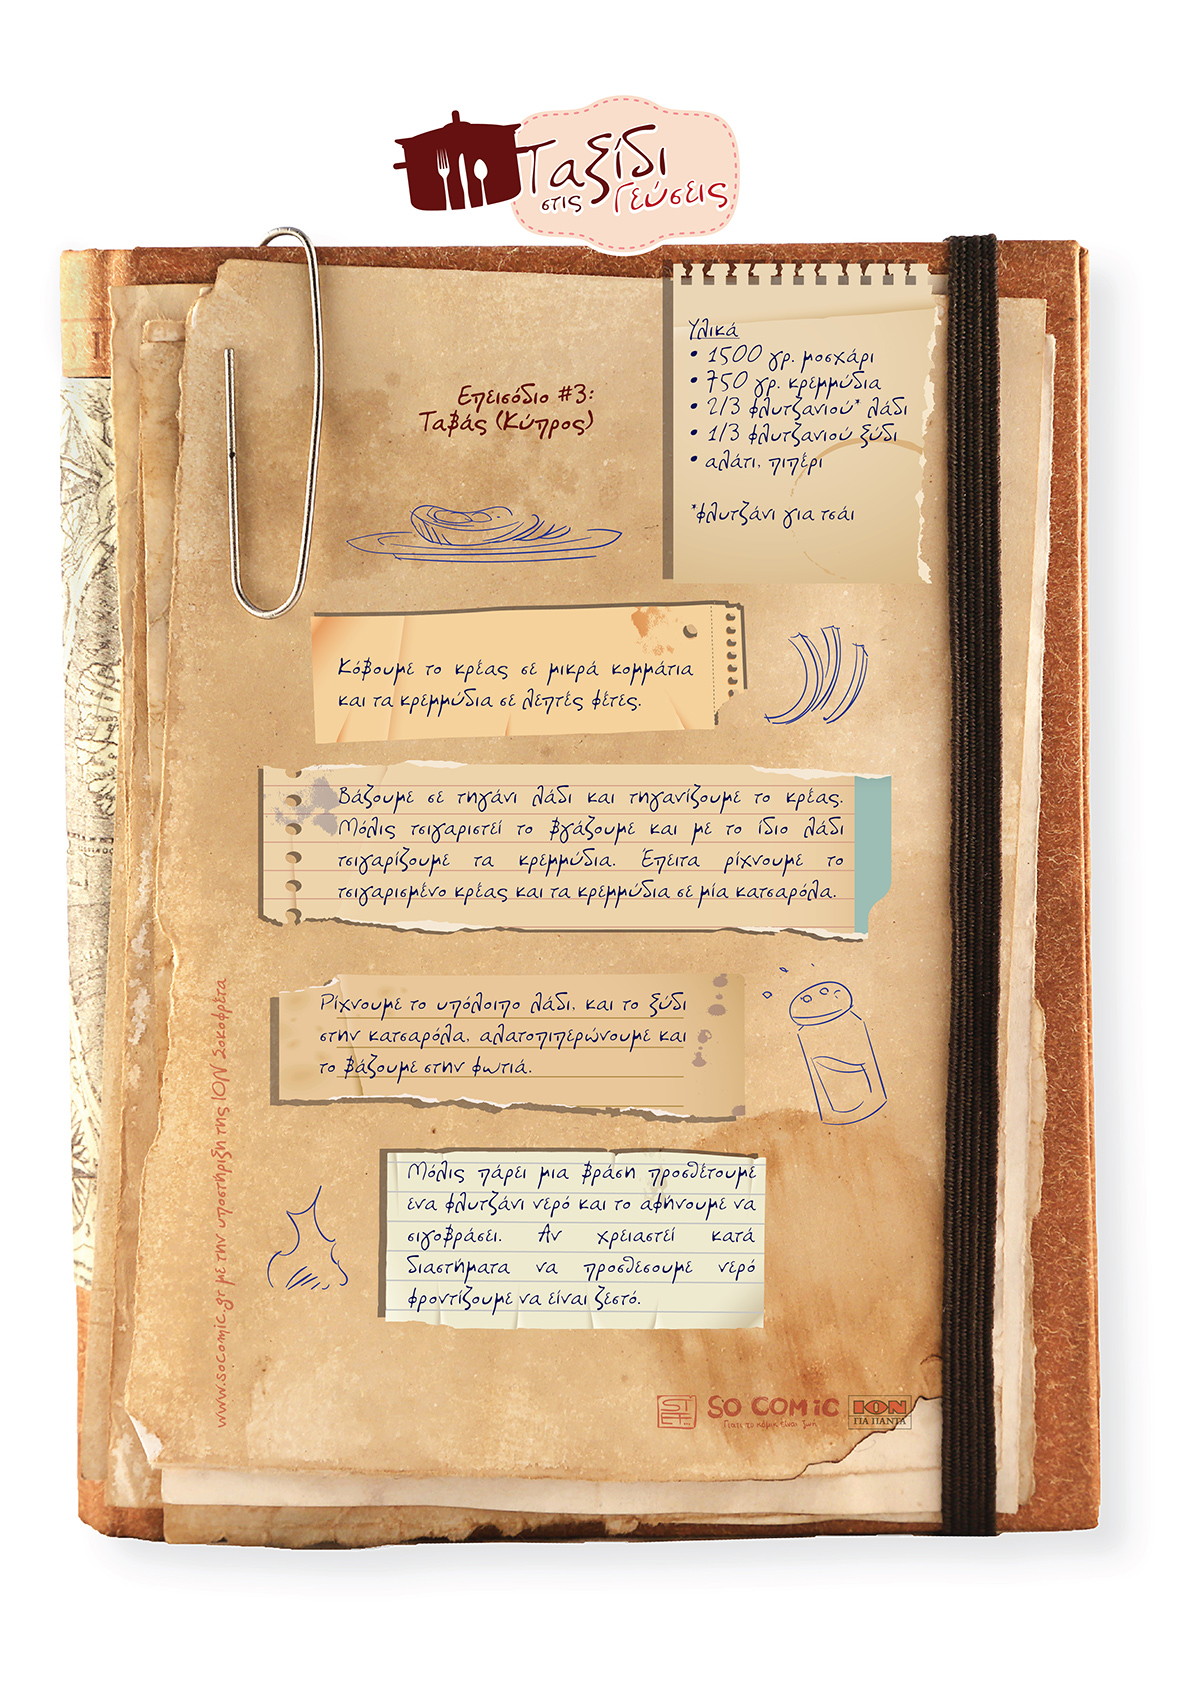 Ταξίδι
στις Γεύσεις
Επεισόδιο #3:
Ταβάς (Κύπρος)
Υλικά
• 1500 γρ. μοσχάρι
• 750 γρ. κρεμμύδια
• 2/3 φλυτζανιού* λάδι
• 1/3 φλυτζανιού ξύδι
• αλάτι, πιπέρι
*φλυτζάνι για τσάι
Κόβουμε το κρέας σε μικρά κομμάτια
και τα κρεμμύδια σε λεπτές φέτες.
Βάζουμε σε τηγάνι λάδι και τηγανίζουμε το κρέας.
Μόλις τσιγαριστεί το βγάζουμε και με το ίδιο λάδι
τσιγαρίζουμε τα κρεμμύδια. Έπειτα ρίχνουμε το
τσιγαρισμένο κρέας και τα κρεμμύδια σε μία κατσαρόλα.
Ρίχνουμε το υπόλοιπο λάδι, και το ξύδι
στην κατσαρόλα, αλατοπιπερώνουμε και
το βάζουμε στην φωτιά.
Μόλις πάρει μια βράση προσθέτουμε
ενα φλυτζάνι νερό και το αφήνουμε να
σιγοβράσει. Αν χρειαστεί κατά
διαστήματα να προσθεσουμε νερό
φροντίζουμε να είναι ζεστό.
www.socomic.gr με την υποστήριξη της ΙΟΝ Σοκοφρέτα
SO COMiC
Γιατί το κόμικ είναι ζωή
ΙΟΝ
ΓΙΑ ΠΑΝΤΑ